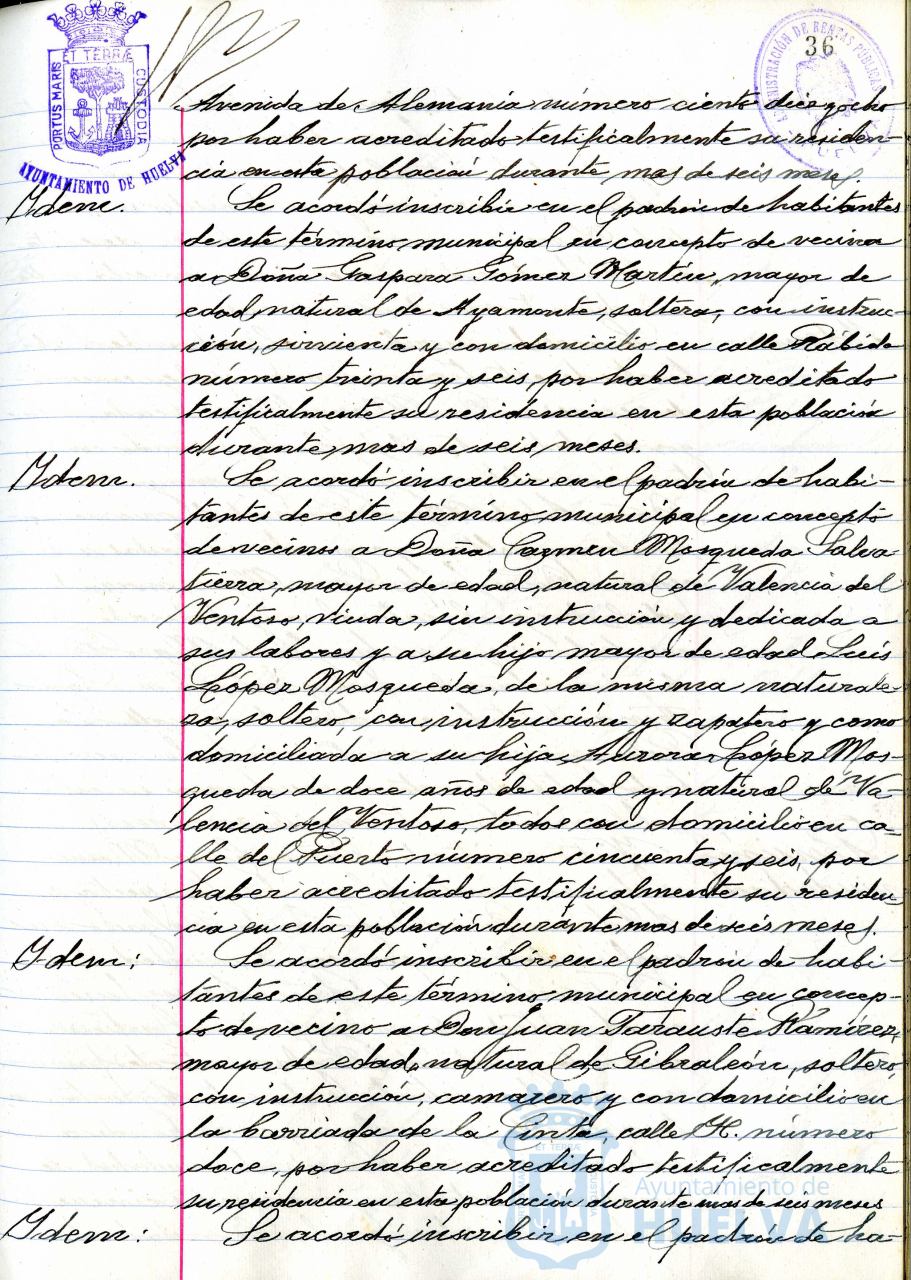 36
PORTUS MARIS
ET TERRÆ
CUSTODIA
AYUNTAMIENTO DE HUELVA
ADMINISTRACIÓN DE RENTAS PÚBLICAS
HUELVA
Avenida de Alemania número ciento diez y ocho
por haber acreditado testificalmente su residen-
cia en esta población durante mas de seis meses.
Ydem. Se acordó inscribir en el padrón de habitantes
de este término municipal en concepto de vecina
a Doña Gaspara Gómez Martín, mayor de
edad natural de Ayamonte, soltera, con instruc-
ción, sirvienta y con domicilio en calle Rábida
número treinta y seis, por haber acreditado
testificalmente su residencia en esta población
durante mas de seis meses.
Ydem. Se acordó inscribir en el padrón de habi-
tantes de este término municipal en concepto
de vecinos a Doña Carmen Mosqueda Salva
tierra, mayor de edad, natural de Valencia del
Ventoso, viuda, sin instrucción y dedicada a
sus labores y a su hijo mayor de edad Luis
López Mosqueda, de la misma naturale-
za, soltero, con instrucción y zapatero y como
domiciliada a su hija Aurora López Mos-
queda de doce años de edad y natural de Va-
lencia del Ventoso, todos con domicilio en ca-
lle del Puerto número cincuenta y seis, por
haber acreditado testificalmente su residen-
cia en esta población durante mas de seis meses.
Ydem: Se acordó inscribir en el padrón de habi-
tantes de este término municipal en concep-
to de vecino a Don Juan Ramírez,
mayor de edad, natural de Gibraleón, soltero,
con instrucción, camarero y con domicilio en
la barriada de la Cinta, calle H. número
doce, por haber acreditado testificalmente
su residencia en esta población durante mas de seis meses
Ydem: Se acordó inscribir en el padrón de ha-
ET TERRÆ
Ayuntamiento de
HUELVA